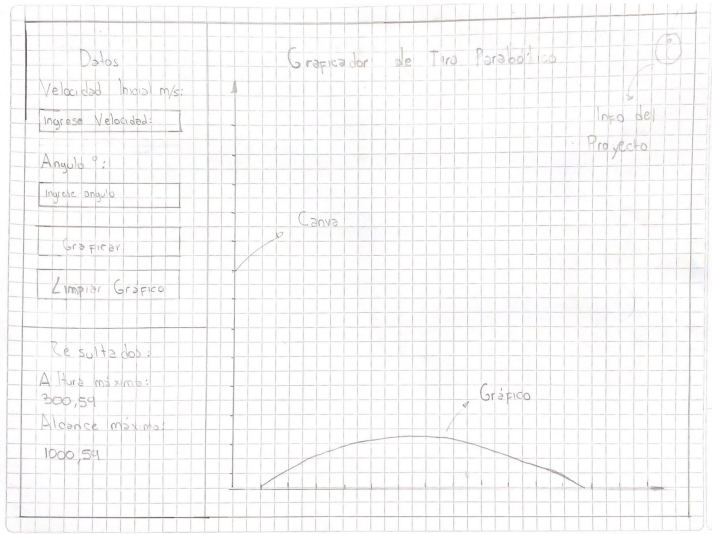 Datos
Velocidad Inicial m/s:
Ingrese Velocidad:
Angulo °:
Ingrese angulo
Graficar
Limpiar Gráfico
Resultados:
Altura máxima:
300,59
Alcance máximo:
1000,59
Graficador de Tiro Parabólico
Info del
Proyecto
Canva
Gráfico